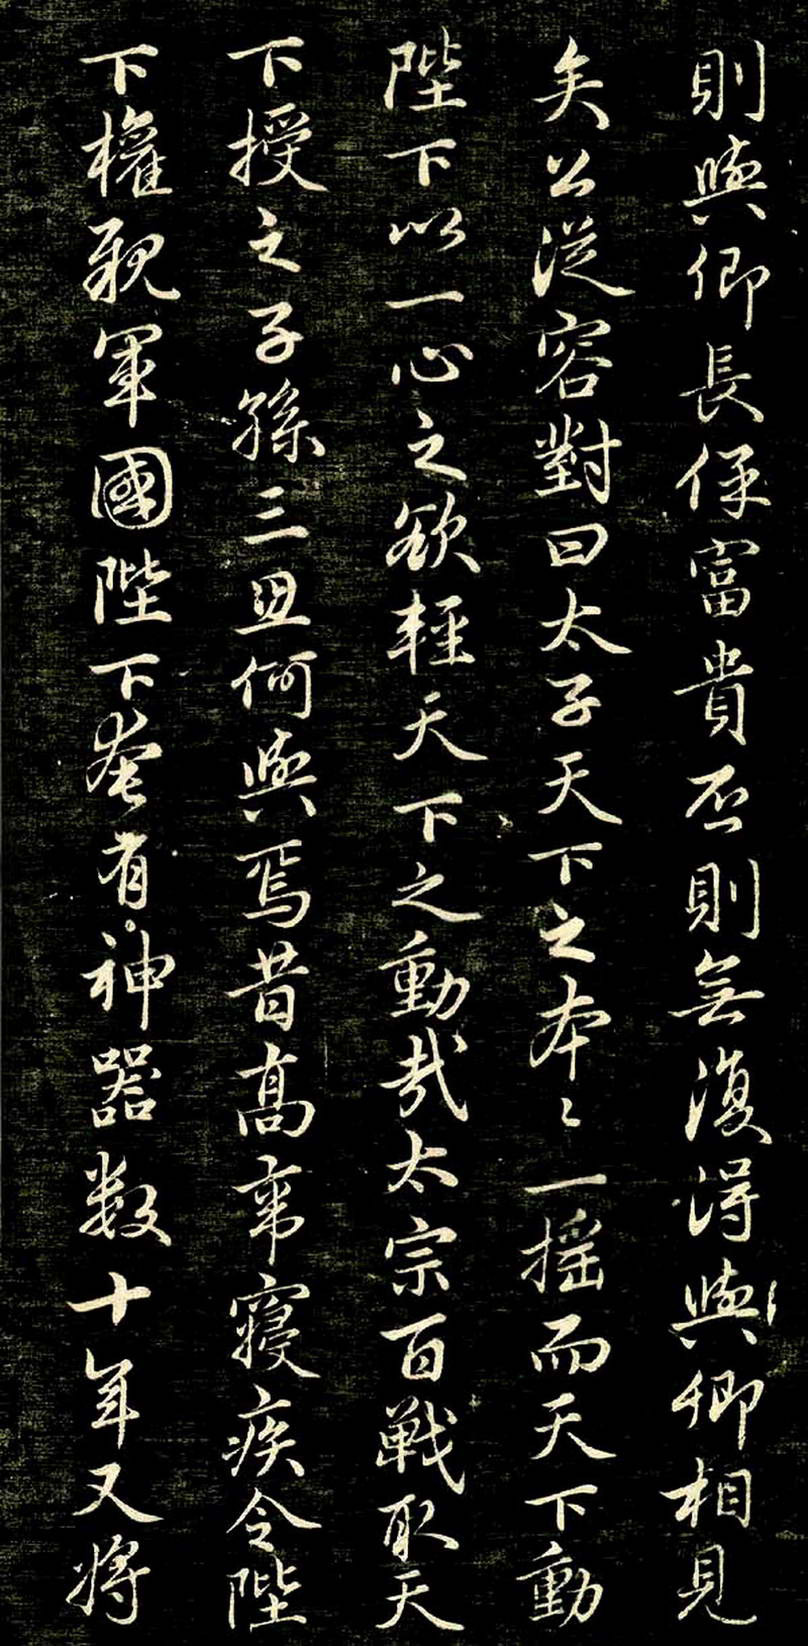 則與卿長保富貴否則無復得與卿相見
矣公從容對曰太子天下之本〻一搖而天下動
陛下以一心之欲輕天下之動哉太宗百戰取天
下授之子孫三思何與焉昔高帝寢疾令陛
下權親軍國陛下奄有神器數十年又將